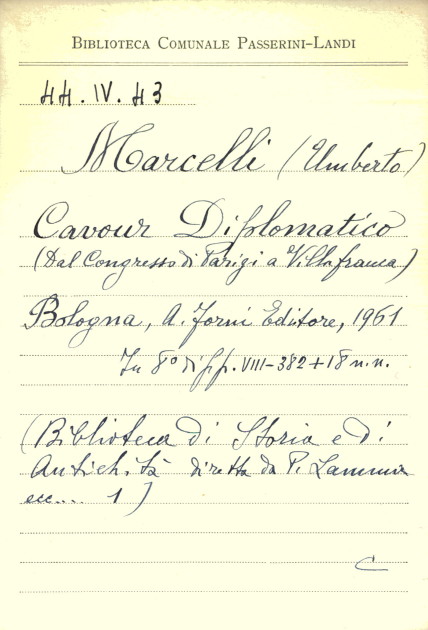 BIBLIOTECA COMUNALE PASSERINI-LANDI
44. IV. 43
Marcelli (Umberto)
Cavour Diplomatico
(Dal Congresso di Parigi a Villafranca)
Bologna, A. Forni Editore, 1961
In 8° di pp. VIII-382+18 n.n.
(Biblioteca di Storia e di
Antichità diretta da P. Lamma
ecc.... 1)
C